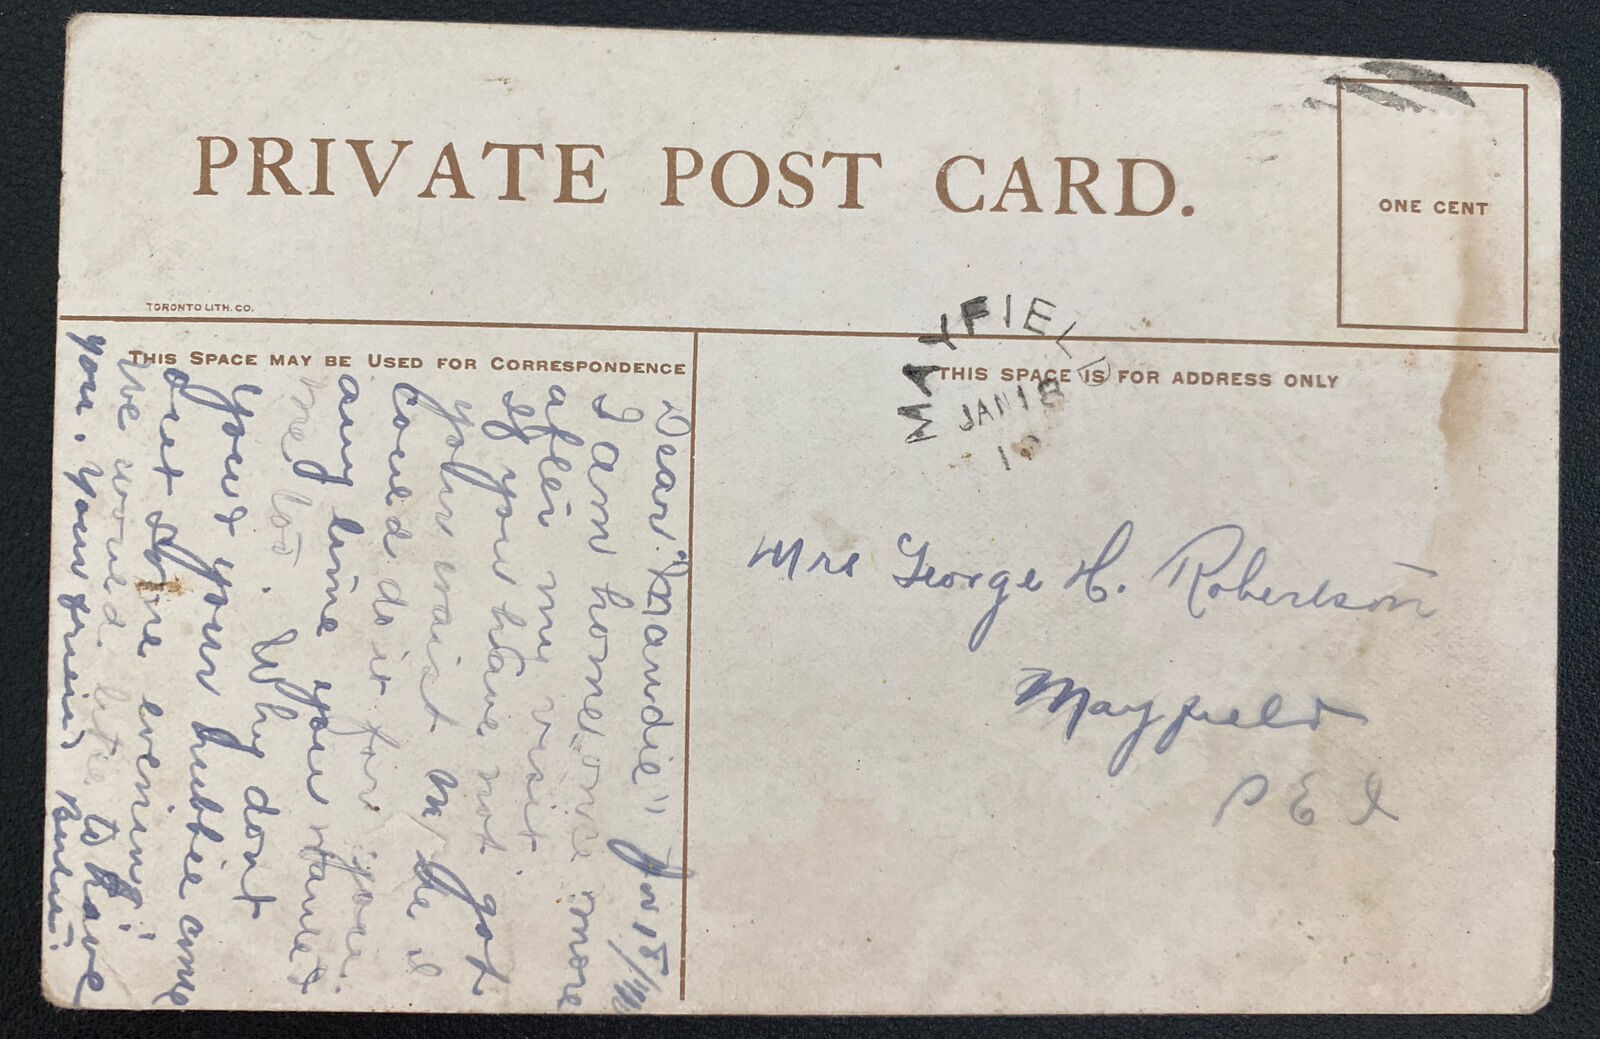 PRIVATE POST CARD.
ONE CENT
TORONTO LITH. CO.
THIS SPACE MAY BE USED FOR CORRESPONDENCE
THIS SPACE IS FOR ADDRESS ONLY
MAYFIELD
JAN 18
Mrs George H. Robertson
Mayfield
P E I
Dear "Maudie" Jan 18/
I am home once more
after my visit.
If you have not got
your waist m be I
could do it for you.
any time you wanted
me to. Why dont
you & your hubbie come
out some evening
We would like to have
you. Your friend